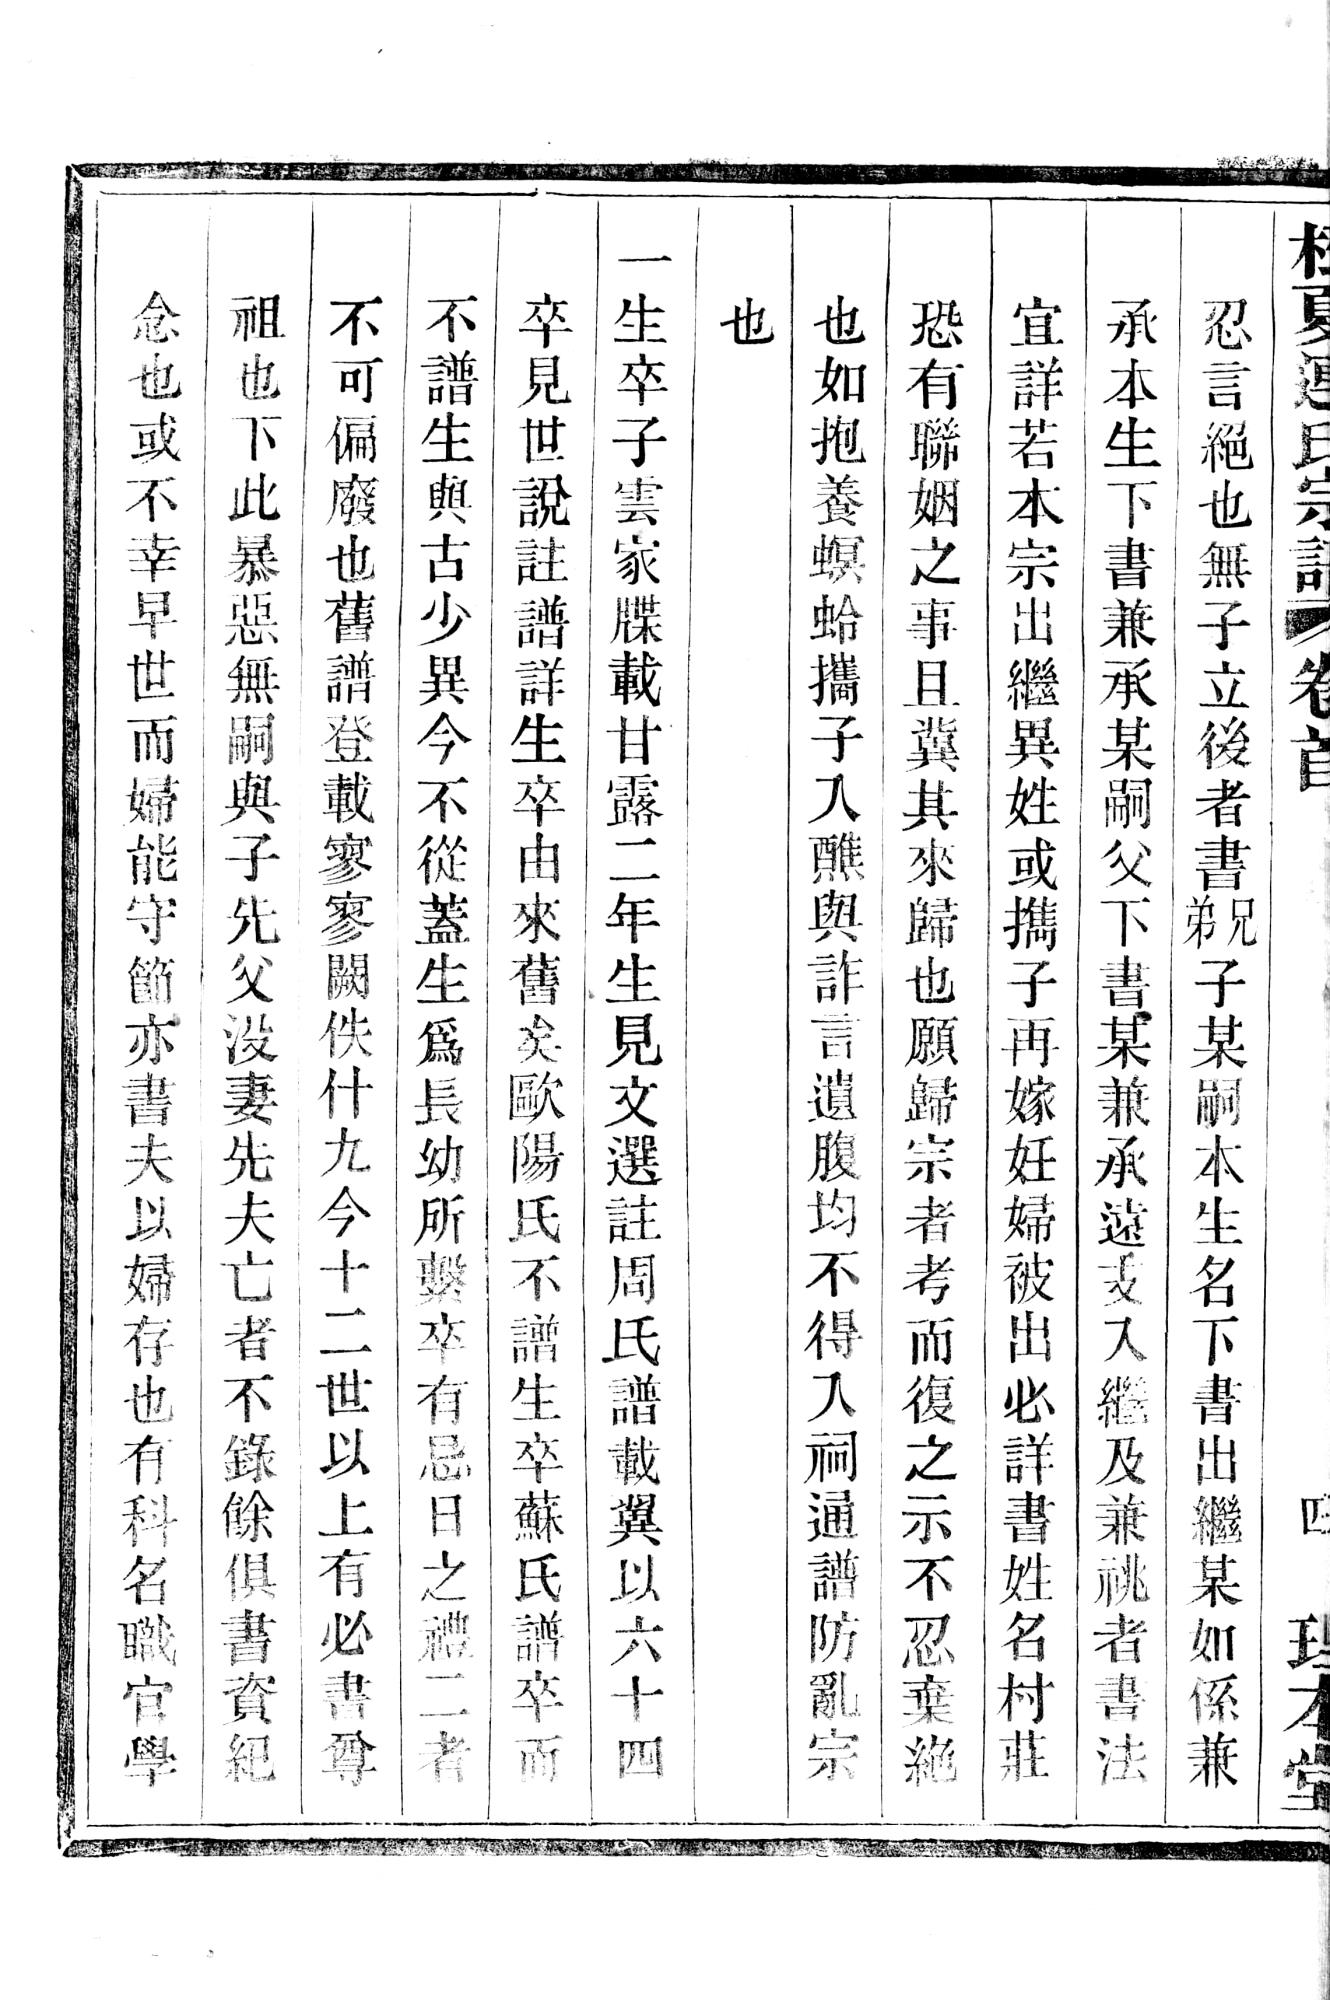 夏運氏宗譜 卷首 四 理本堂
忍言絕也無子立後者書兄弟子某嗣本生名下書出繼某如係兼
承本生下書兼承某嗣父下書某兼承遠支入繼及兼祧者書法
宜詳若本宗出繼異姓或攜子再嫁妊婦被出必詳書姓名村莊
恐有聯姻之事且冀其來歸也願歸宗者考而復之示不忍棄絕
也如抱養螟蛉攜子入醮與詐言遺腹均不得入祠通譜防亂宗
也
一生卒子雲家牒載甘露二年生見文選註周氏譜載翼以六十四
卒見世說註譜詳生卒由來舊矣歐陽氏不譜生卒蘇氏譜卒而
不譜生與古少異今不從蓋生爲長幼所繫卒有忌日之禮二者
不可偏廢也舊譜登載寥寥闕佚什九今十二世以上有必書尊
祖也下此暴惡無嗣與子先父没妻先夫亡者不錄餘俱書資紀
念也或不幸早世而婦能守節亦書夫以婦存也有科名職官學